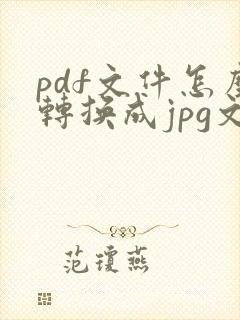 pdf文件怎麼
轉換成jpg文
范瓊燕